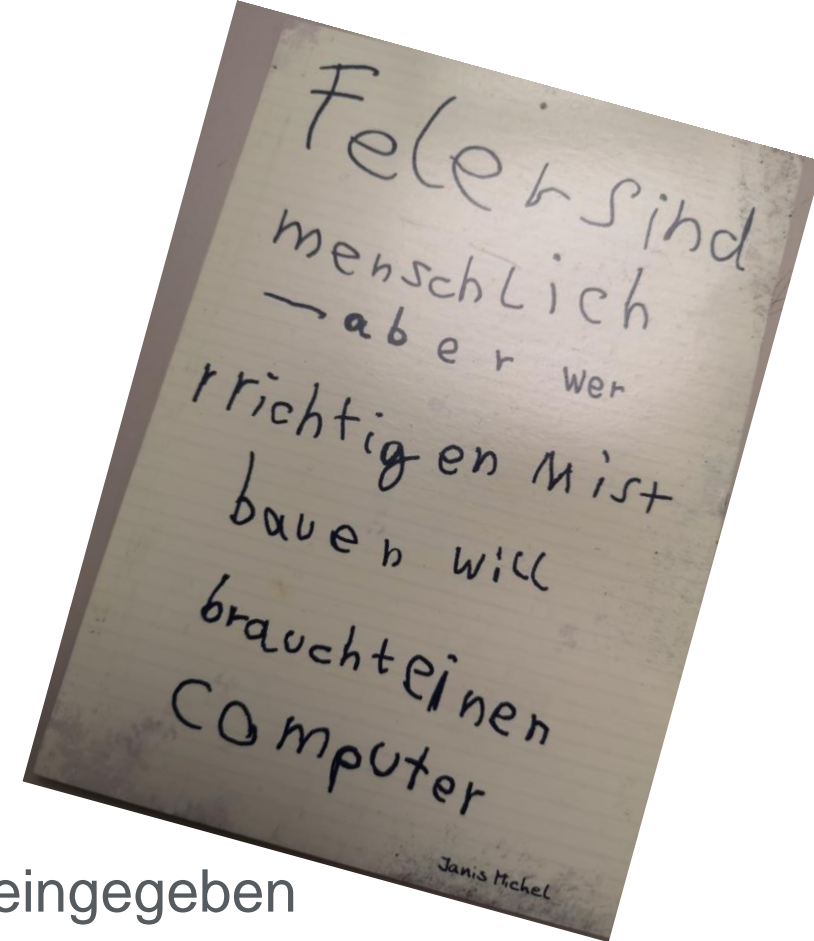 Feler sind
menschlich
— aber wer
rrichtigen Mist
bauen will
braucht einen
Computer
Janis Michel
eingegeben